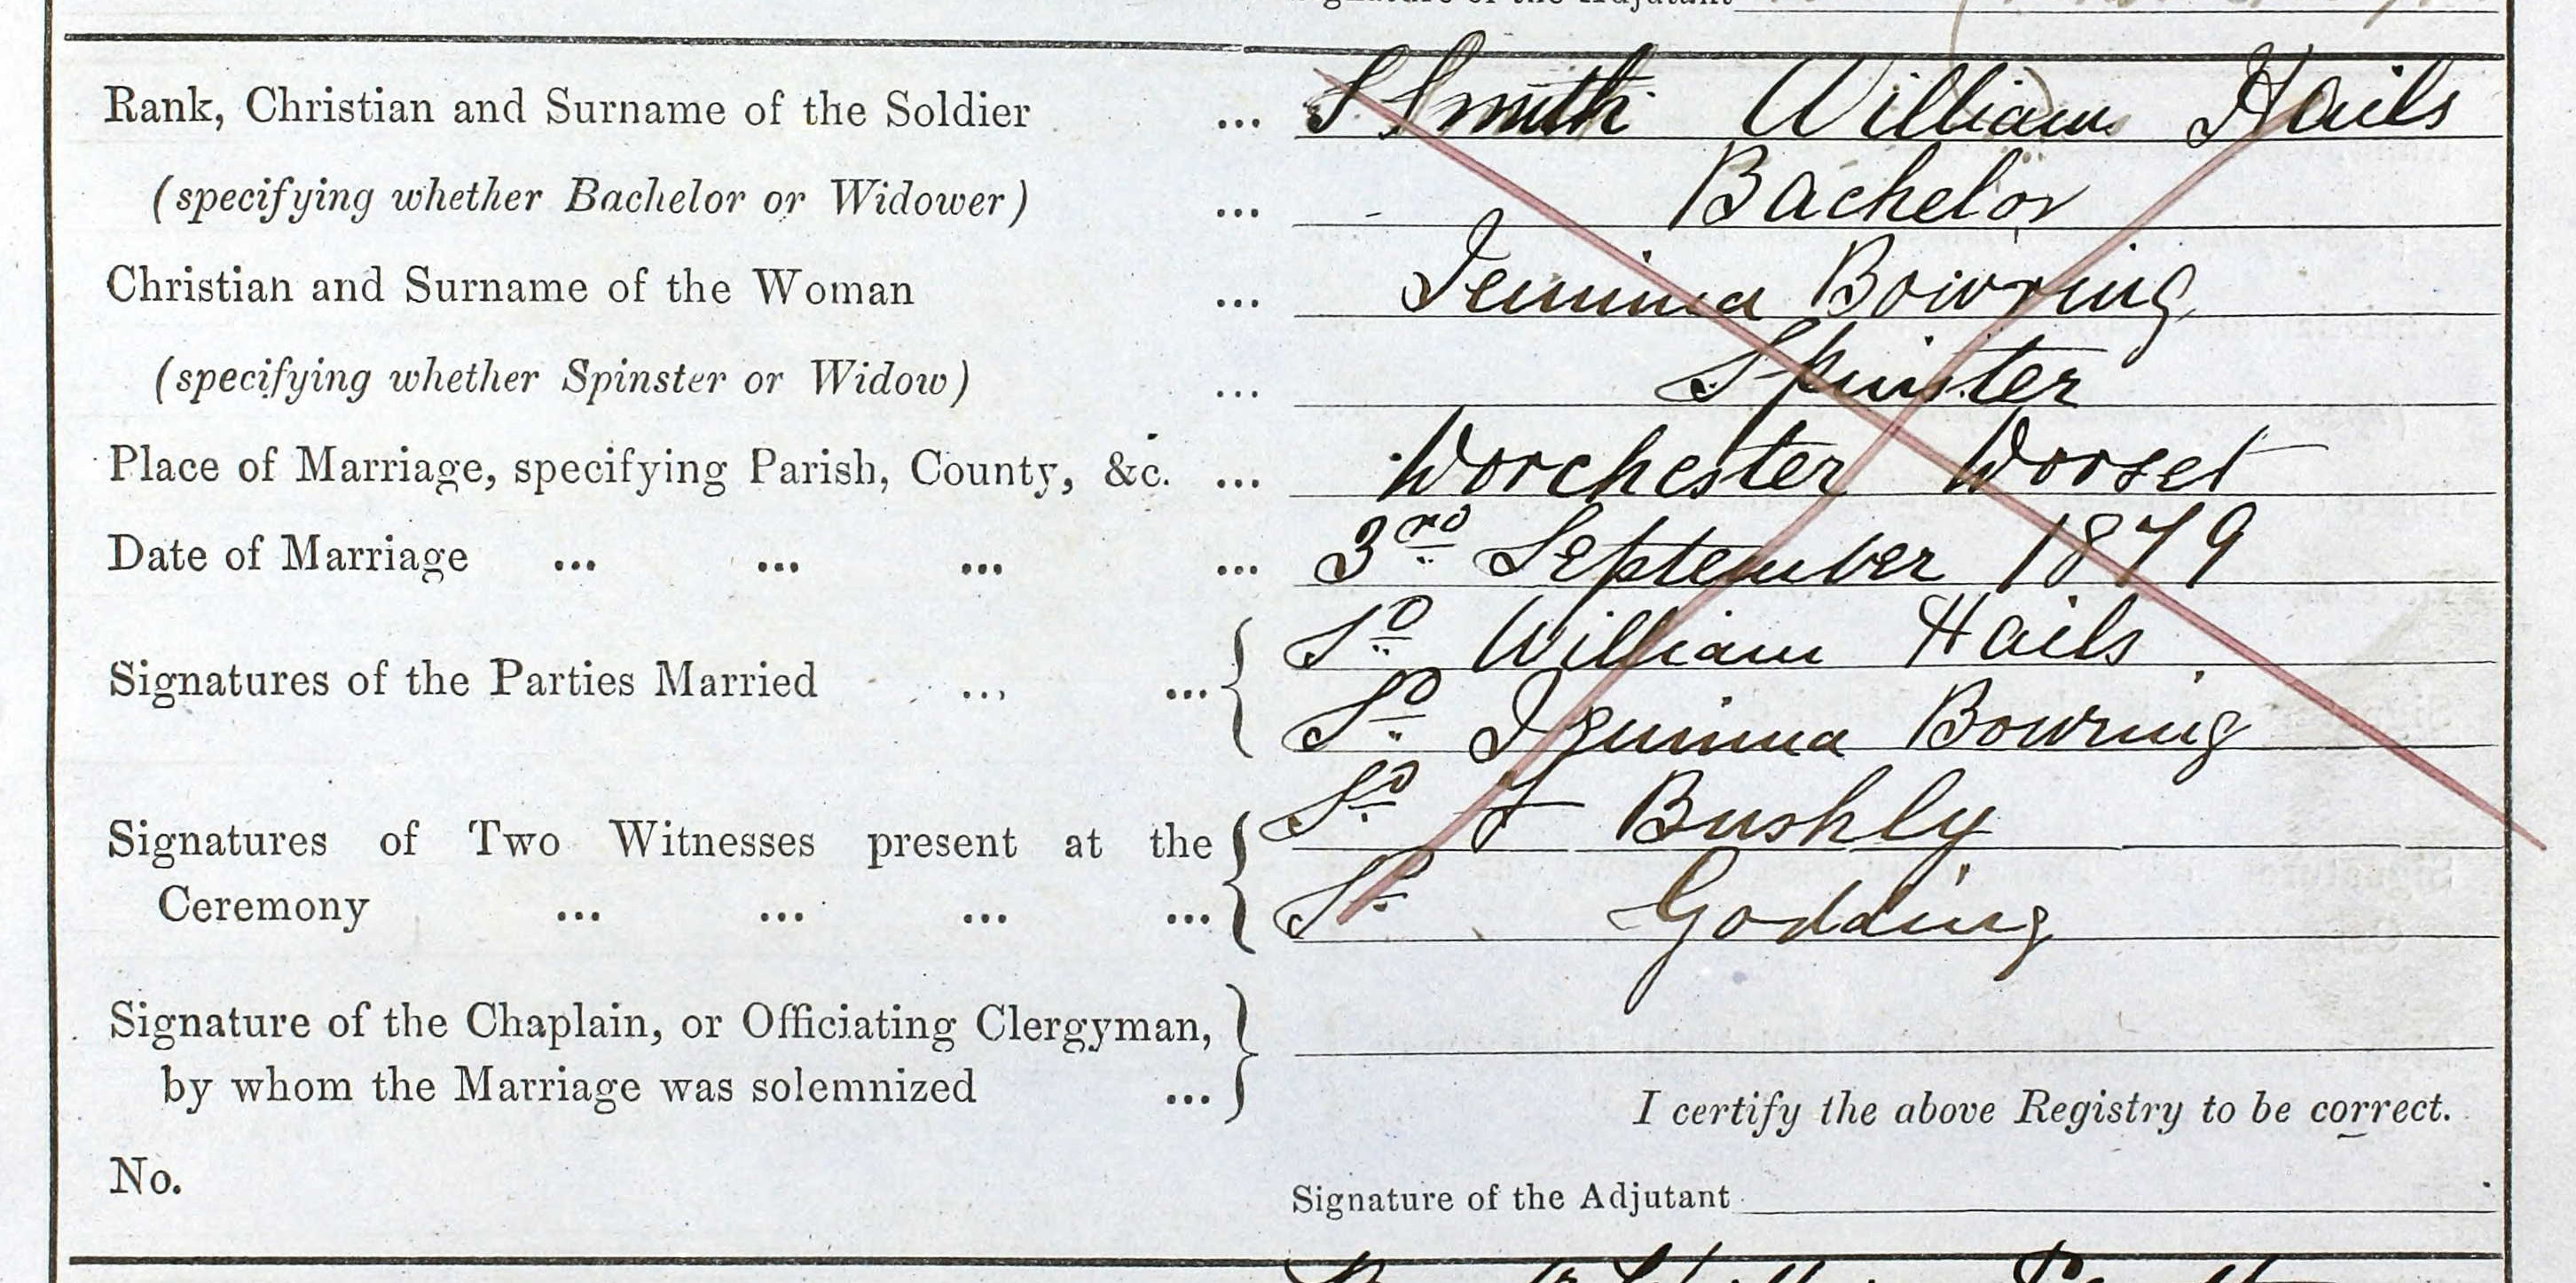 Signature of the Adjutant
Rank, Christian and Surname of the Soldier ... S Smith William Hails
(specifying whether Bachelor or Widower) ... Bachelor
Christian and Surname of the Woman ... Jemima Bowring
(specifying whether Spinster or Widow) ... Spinster
Place of Marriage, specifying Parish, County, &c. ... Dorchester Dorset
Date of Marriage ... ... ... ... 3rd September 1879
Sd William Hails
Signatures of the Parties Married ... ...
Sd Jemima Bowring
Sd F Bushly
Signatures of Two Witnesses present at the
Ceremony ... ... ... ... Sd Godding
Signature of the Chaplain, or Officiating Clergyman,
by whom the Marriage was solemnized ...
I certify the above Registry to be correct.
No.
Signature of the Adjutant